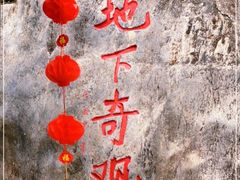 地下奇观
福